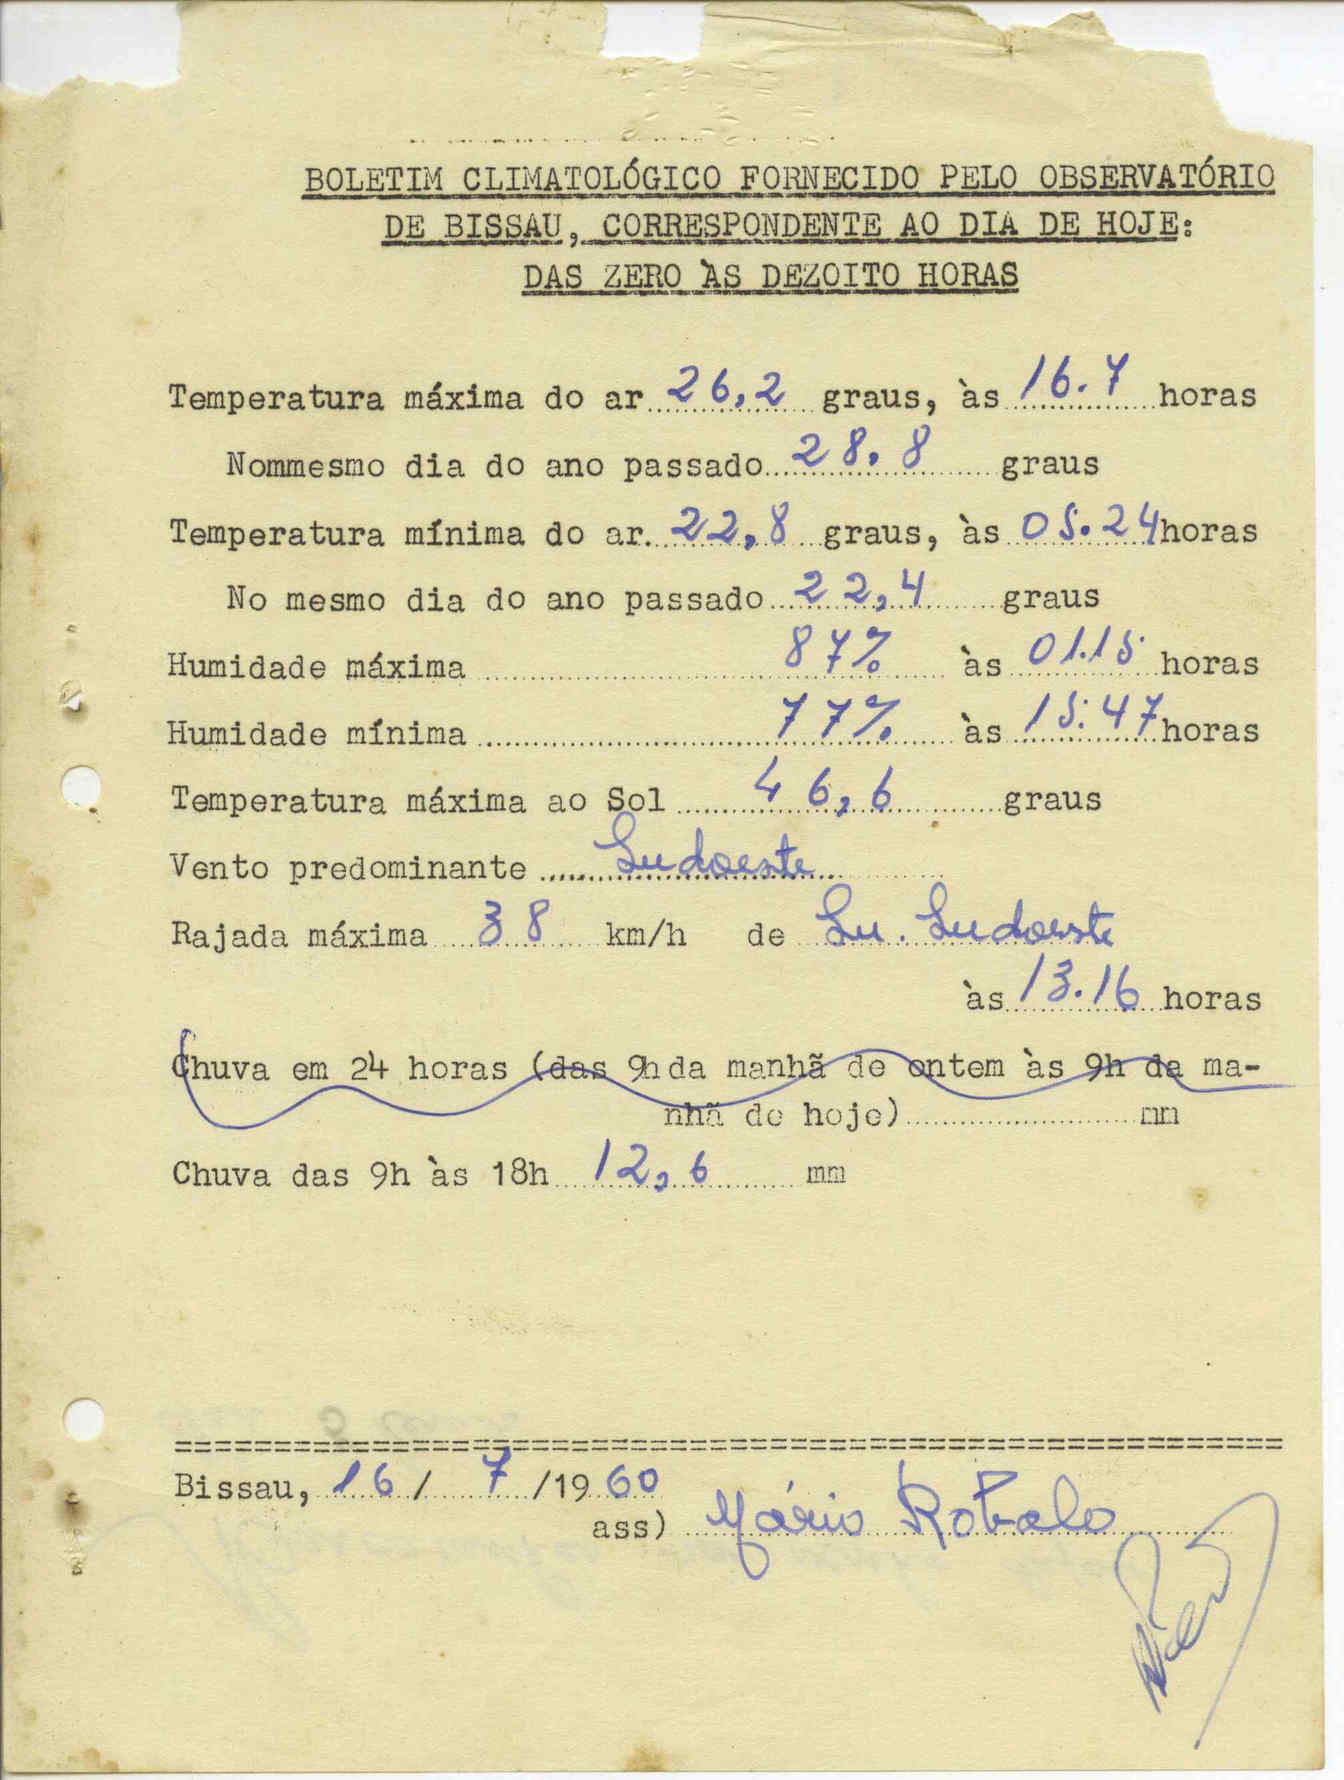 BOLETIM CLIMATOLÓGICO FORNECIDO PELO OBSERVATÓRIO
DE BISSAU, CORRESPONDENTE AO DIA DE HOJE:
DAS ZERO ÀS DEZOITO HORAS
Temperatura máxima do ar 26,2 graus, às 16.7 horas
Nommesmo dia do ano passado 28.8 graus
Temperatura mínima do ar 22,8 graus, às 05.24 horas
No mesmo dia do ano passado 22,4 graus
Humidade máxima 87% às 01.15 horas
Humidade mínima 77% às 15.47 horas
Temperatura máxima ao Sol 46,6 graus
Vento predominante Sudoeste
Rajada máxima 38 km/h de Su. Sudoeste
às 13.16 horas
Chuva em 24 horas (das 9h da manhã de ontem às 9h da ma-
nhã de hoje) mm
Chuva das 9h às 18h 12,6 mm
Bissau, 16 / 7 /1960
ass) Mário Robalo